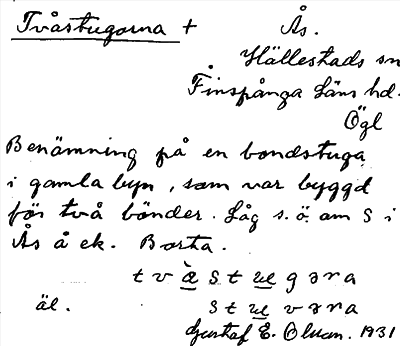 Tvåstugorna +
Ås.
Hällestads sn
Finspånga läns hd.
Ögl
Benämning på en bondstuga
i gamla byn, som var byggd
för två bönder. Låg s.ö. om S i
Ås å ek. Borta.
t v æ̀ s t ɯ g ə r a
äl. s t ɯ v ə r a
Gustaf E. 1931